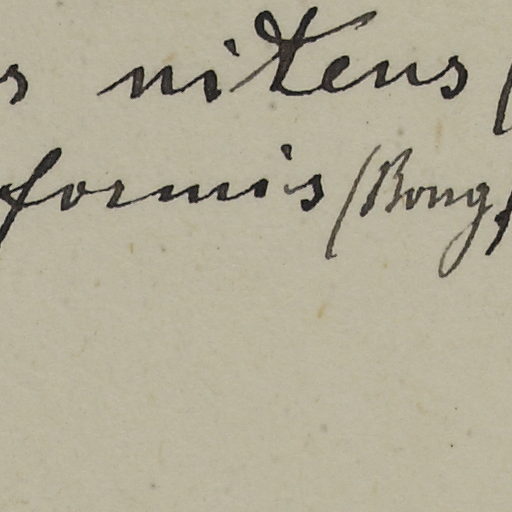 s nitens (
formis (Bong.